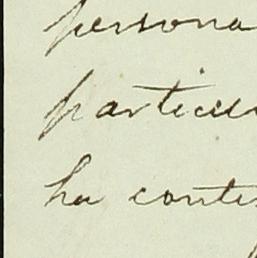 persona
particu
ha conte